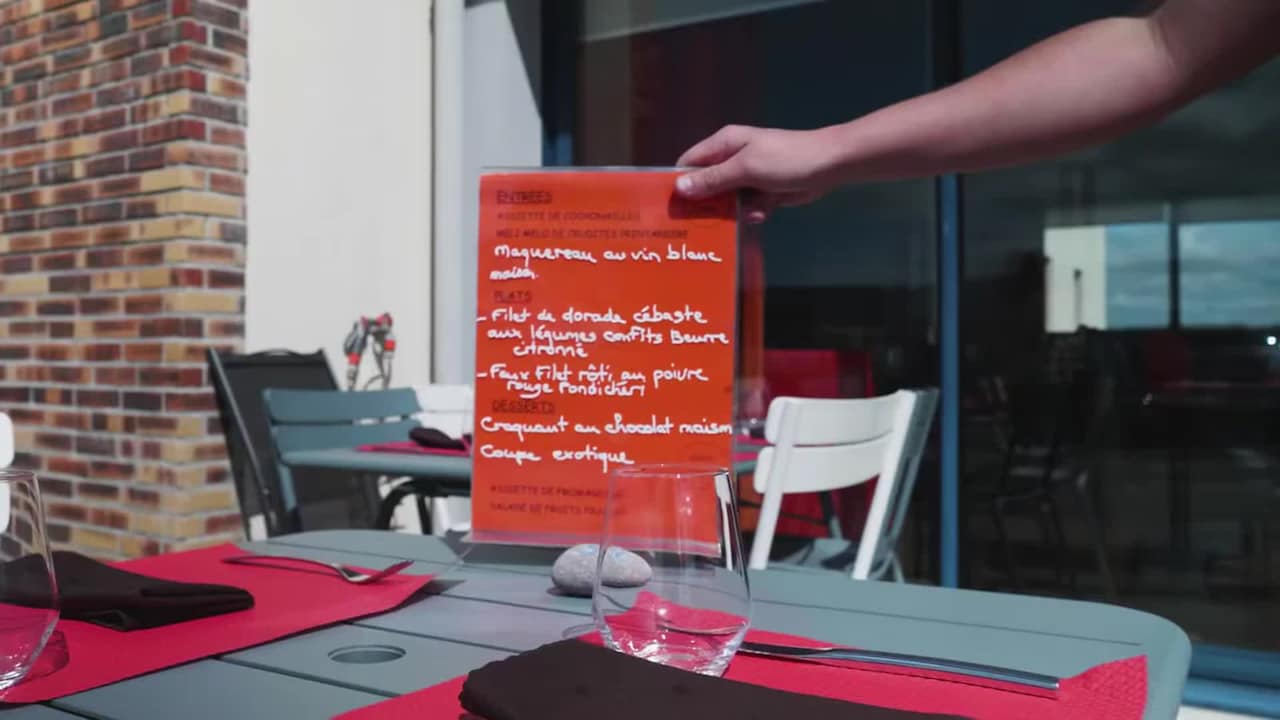 ENTREES
ASSIETTE DE COCHONAILLES
MELI MELO DE CRUDITES PRINTANIERE
Maquereau au vin blanc
maison.
PLATS
- Filet de dorade cébaste
aux légumes confits Beurre
citronné
- Faux Filet rôti, au poivre
rouge Pondichéri
DESSERTS
Croquant au chocolat maison
Coupe exotique
ASSIETTE DE FROMAGE
SALADE DE FRUITS